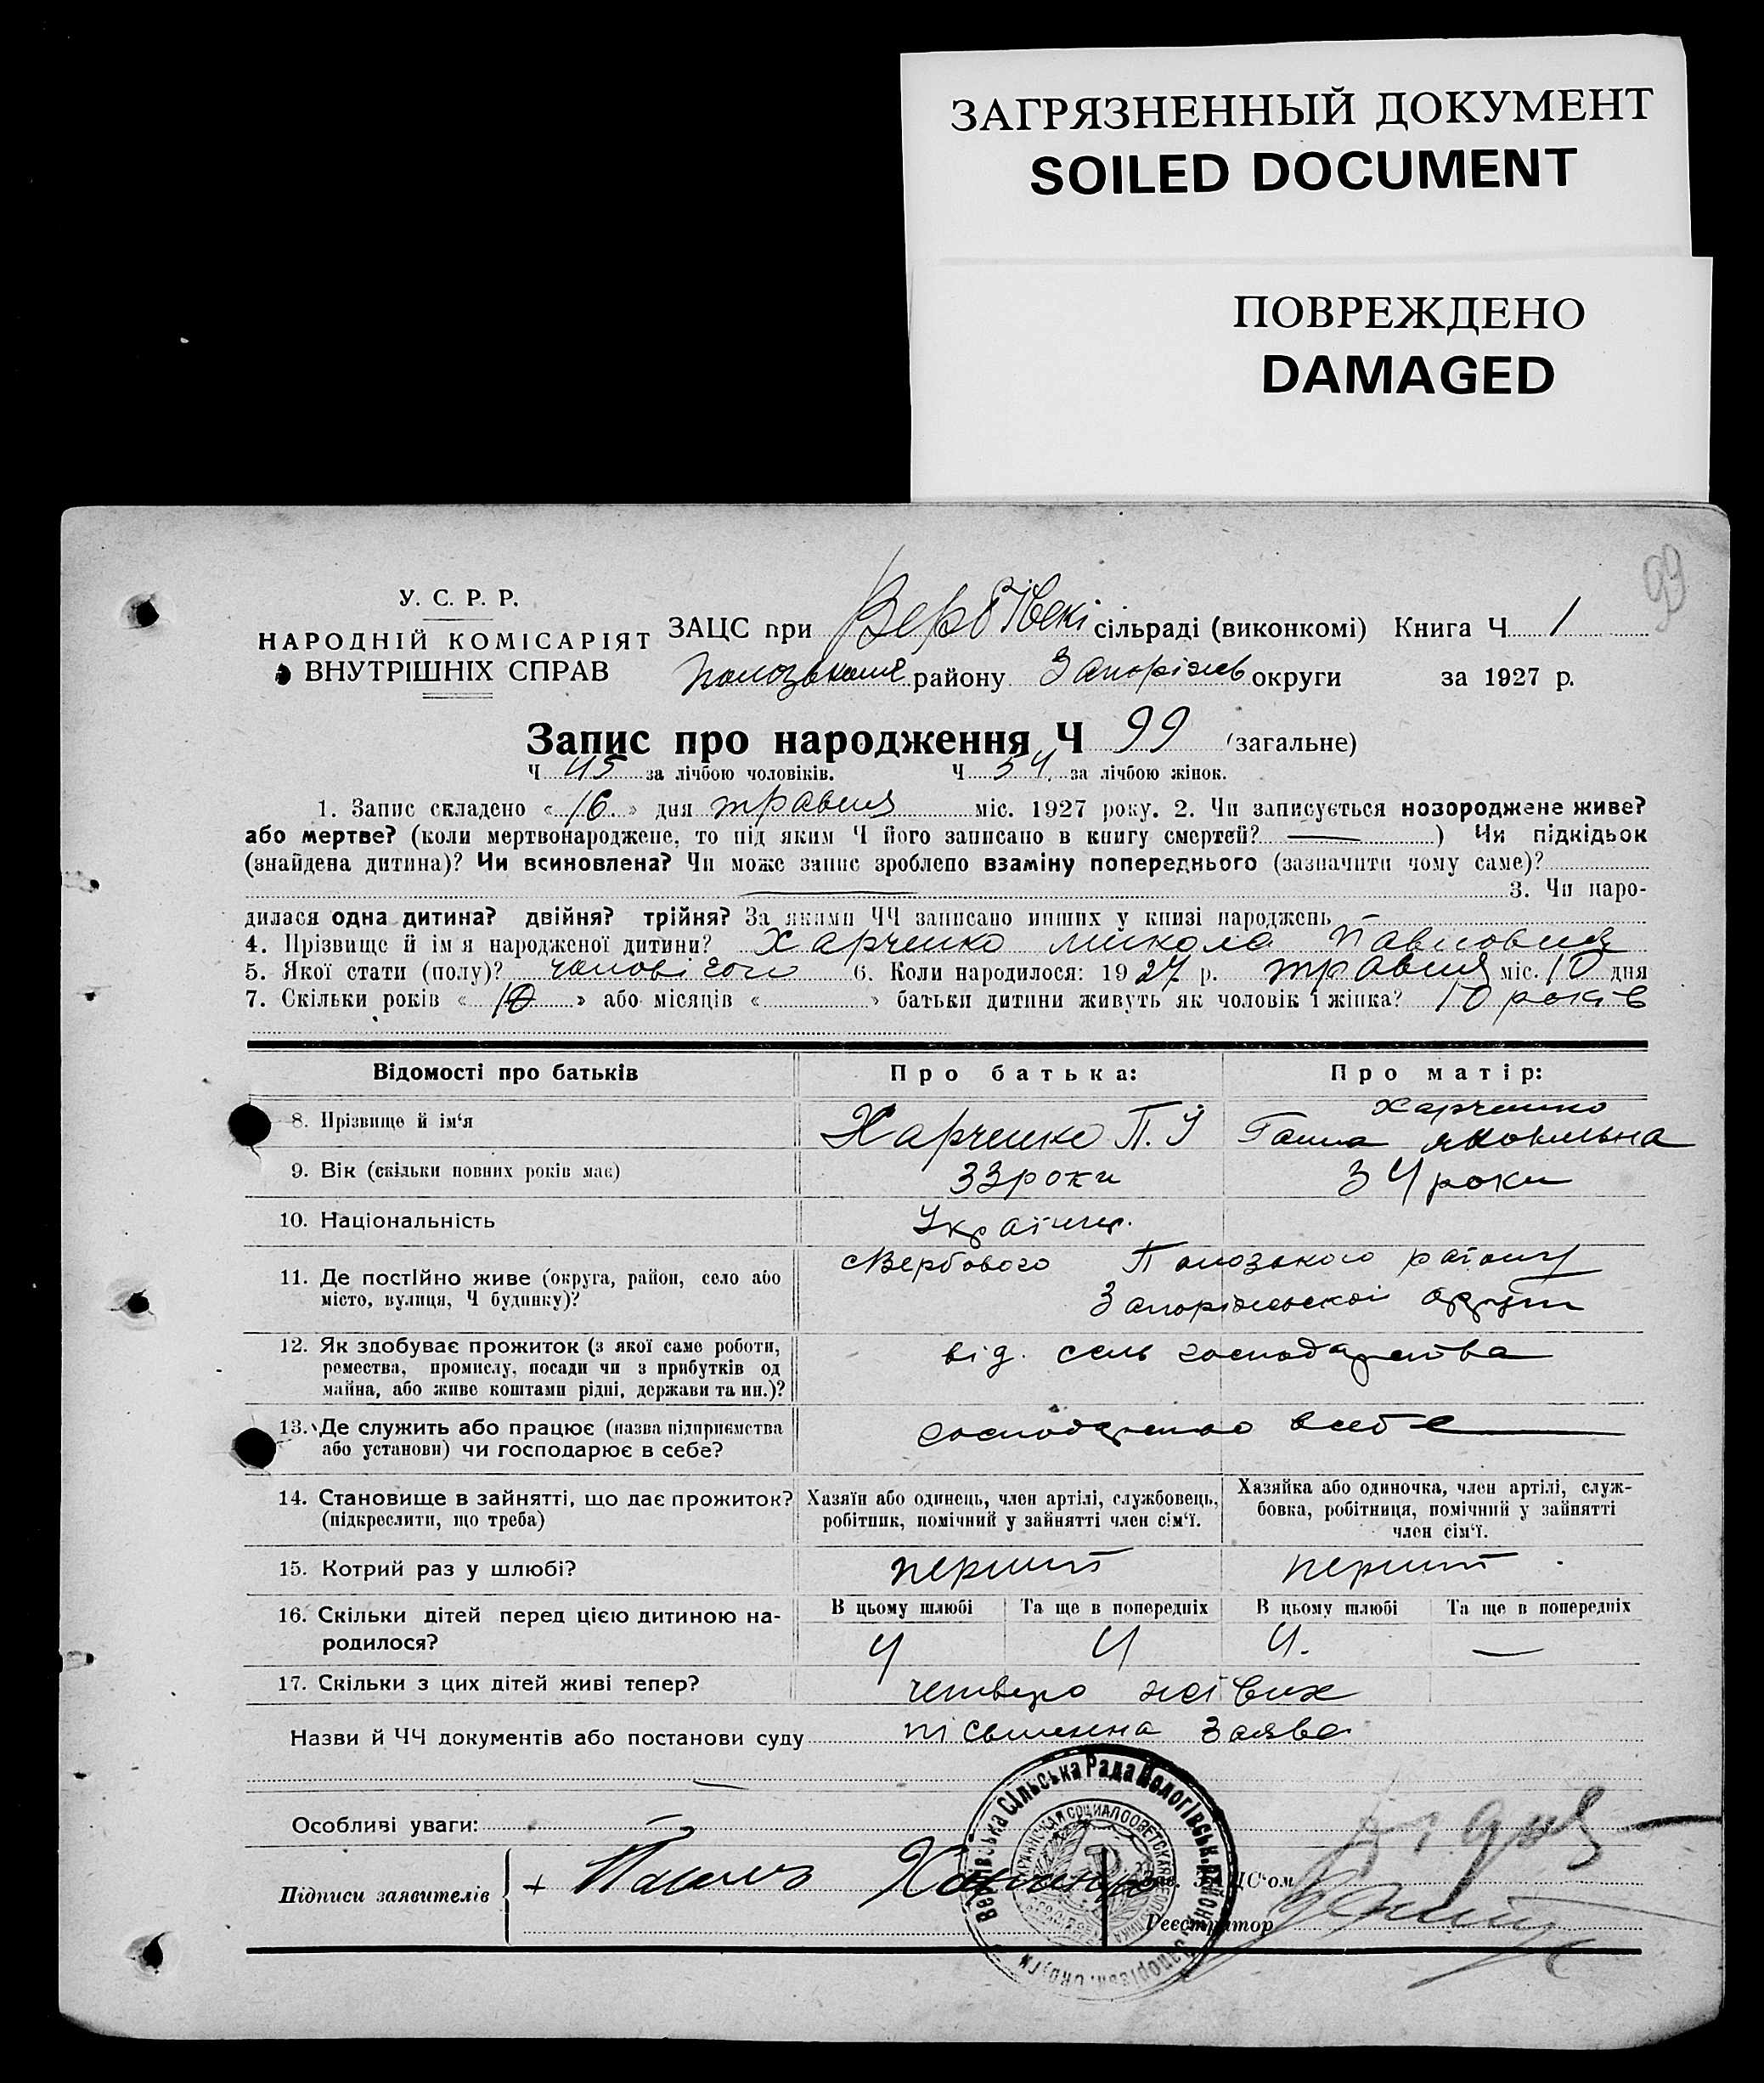 ЗАГРЯЗНЕННЫЙ ДОКУМЕНТ
SOILED DOCUMENT
ПОВРЕЖДЕНО
DAMAGED
99
У. С. Р. Р.
НАРОДНІЙ КОМІСАРІЯТ
ВНУТРІШНІХ СПРАВ
ЗАЦС при Вербівскі сільраді (виконкомі) Книга Ч 1
району Запоріжев округи за 1927 р.
Запис про народження Ч 99 (загальне)
Ч 45 за лічбою чоловіків. Ч 54 за лічбою жінок.
1. Запис складено « 16 » дня травня міс. 1927 року. 2. Чи записується новороджене живе?
або мертве? (коли мертвонароджене, то під яким Ч його записано в книгу смертей? ) Чи підкідьок
(знайдена дитина)? Чи всиновлена? Чи може запис зроблено взаміну попереднього (зазначити чому саме)?
3. Чи наро-
дилася одна дитина? двійня? трійня? За якими ЧЧ записано инших у книзі народжень
4. Прізвище й ім я народженої дитини? Харченко микола Павлович
5. Якої стати (полу)? 6. Коли народилося: 1927 р. травня міс. 10 дня
7. Скільки років « 10 » або місяців « » батьки дитини живуть як чоловік і жінка? 10 років
Відомості про батьків
Про батька:
Про матір:
8. Прізвище й ім‘я
Харченко П. І
Харченко
Ганна яковльвна
9. Вік (скільки повних років має)
33 роки
34 роки
10. Національність
Україниц.
11. Де постійно живе (округа, район, село або
місто, вулиця, Ч будинку)?
сВербового Пологзького району
Запоріжської округи
12. Як здобуває прожиток (з якої саме роботи,
ремества, промислу, посади чи з прибутків од
майна, або живе коштами рідні, держави та ин.)?
від. сель господарства
13. Де служить або працює (назва підприємства
або установи) чи господарює в себе?
всебе
14. Становище в зайнятті, що дає прожиток?
(підкреслити, що треба)
Хазяїн або одинець, член артілі, службовець,
робітник, помічний у зайнятті член сім‘ї.
Хазяйка або одиночка, член артілі, служ-
бовка, робітниця, помічний у зайнятті
член сім‘ї.
15. Котрий раз у шлюбі?
перший
перший
16. Скільки дітей перед цією дитиною на-
родилося?
В цьому шлюбі
Та ще в попередніх
В цьому шлюбі
Та ще в попередніх
4
4
4.
17. Скільки з цих дітей живі тепер?
четверо жівих
Назви й ЧЧ документів або постанови суду
пісьменна Заява
Особливі уваги:
Підписи заявителів
+ Павло Харченко
Зав. ЗАЦС‘ом
Реєстратор
Вербівська Сільська Рада Пологівськ. району, Запорізьк. округи